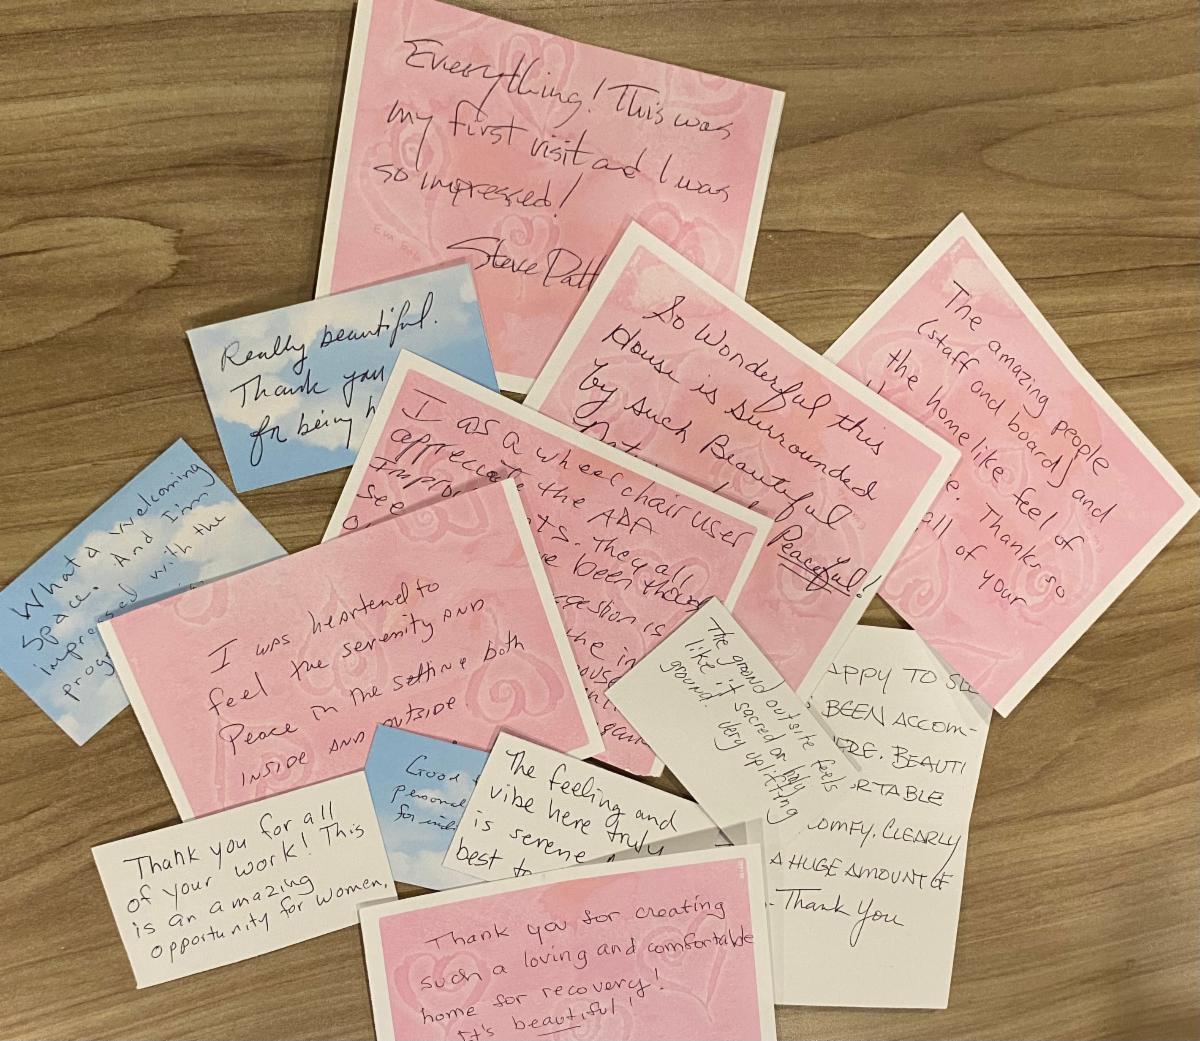 Everything! This was
my first visit and I was
so impressed!
Steve Patt
Really beautiful.
Thank you
for being h
So Wonderful this
House is surrounded
by such Beautiful
Peaceful!
The amazing people
(staff and board) and
the homelike feel of
Thanks so
all of your
I as a wheelchair user
appreciate the ADA
Impro ts. They all
see e been thoug
gestion is
the in
What a welcoming
space. And I'm
impressed with the
prog
I was heartened to
feel the serenity AND
Peace in the setting both
INSIDE AND outside.
The ground outside feels
like it sacred or holy
ground. Very uplifting
APPY TO SE
BEEN ACCOM-
ERE. BEAUTI
RTABLE
OMFY. CLEARLY
A HUGE AMOUNT OF
- Thank You
Good
Personal
for indi
The feeling and
vibe here truly
is serene
best to
Thank you for all
of your work! This
is an amazing
opportunity for women.
Thank you for creating
such a loving and comfortable
home for recovery!
It's beautiful!